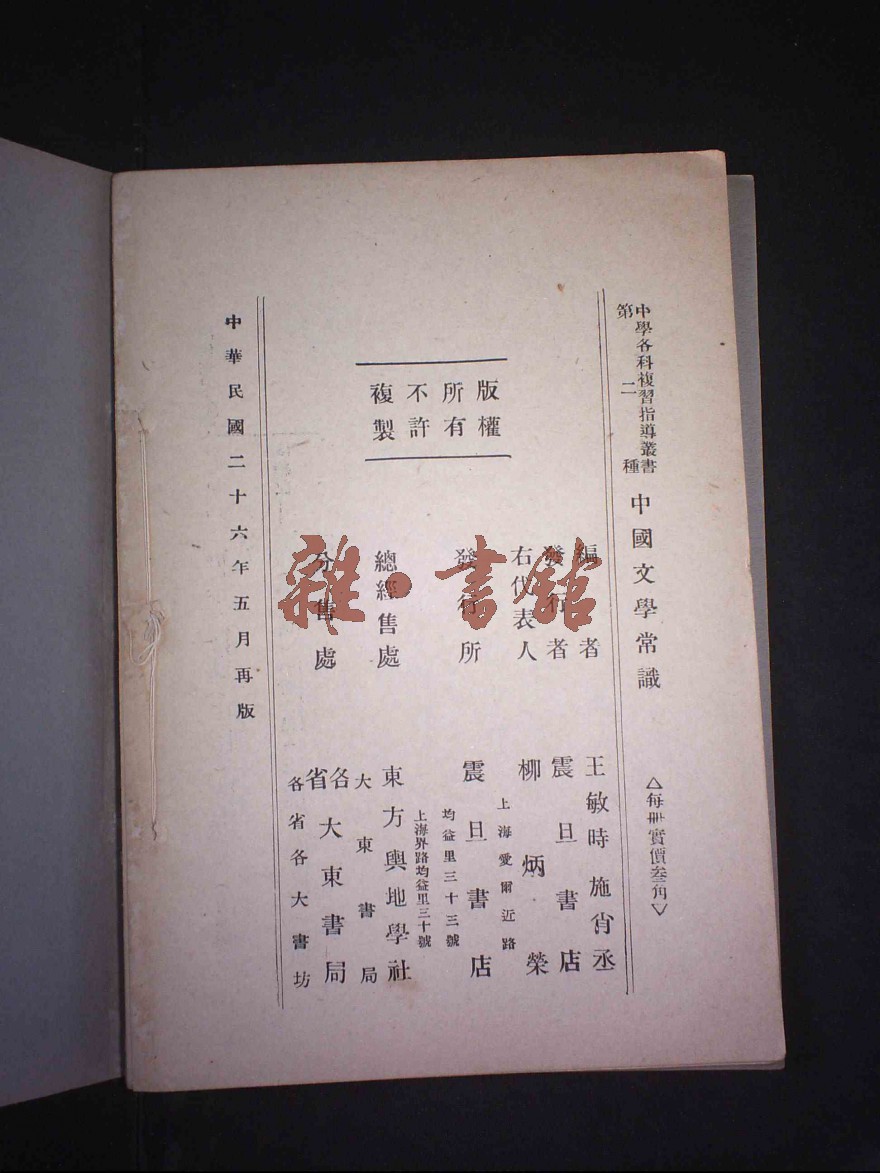 中學各科複習指導叢書
第二種
中國文學常識
△每冊實價叁角▽
版權
所有
不許
複製
編者
王敏時 施肖丞
發行者
震旦書店
右代表人
柳炳榮
發行所
上海愛爾近路
震旦書店
均益里三十三號
總經售處
上海界路均益里三十號
東方輿地學社
大東書局
分售處
各省大東書局
各省各大書坊
中華民國二十六年五月再版
雜·書館